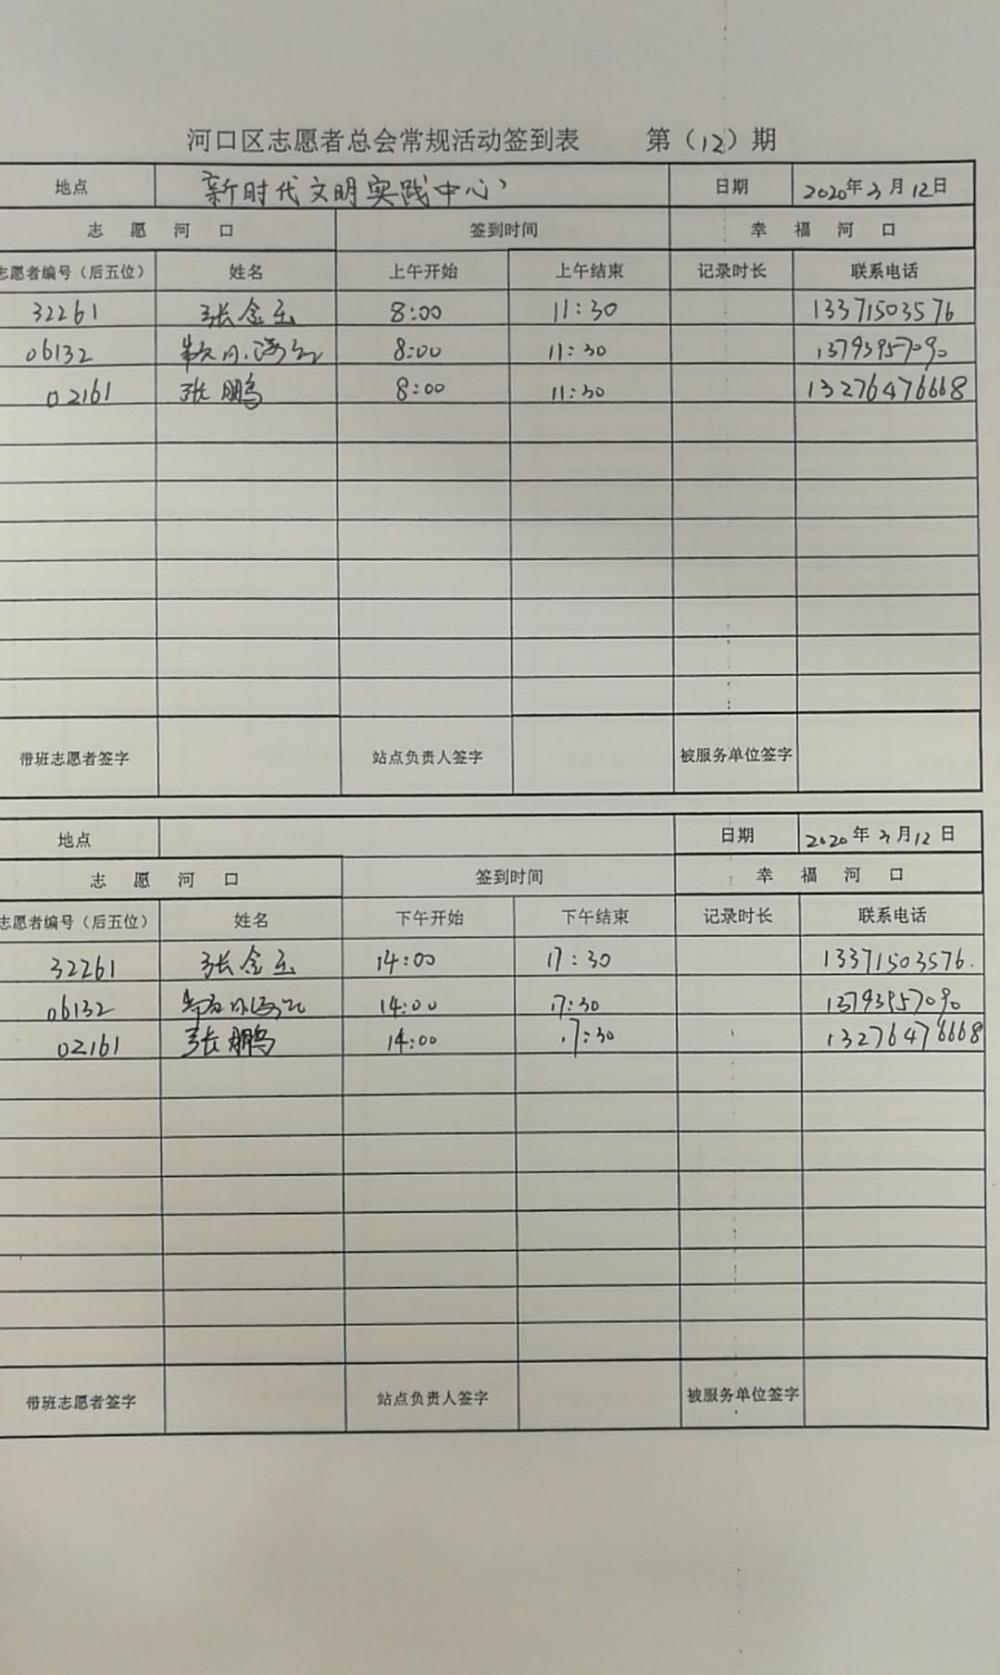 河口区志愿者总会常规活动签到表 第（12）期
地点 新时代文明实践中心 日期 2020年3月12日
志 愿 河 口 签到时间 幸 福 河 口
志愿者编号（后五位） 姓名 上午开始 上午结束 记录时长 联系电话
32261 张金玉 8:00 11:30 13371503576
06132 8:00 11:30 13793957090
02161 张鹏 8:00 11:30 13276476668
带班志愿者签字 站点负责人签字 被服务单位签字
地点 日期 2020年3月12日
志 愿 河 口 签到时间 幸 福 河 口
志愿者编号（后五位） 姓名 下午开始 下午结束 记录时长 联系电话
32261 张金玉 14:00 17:30 13371503576.
06132 14:00 17:30 13793957090
02161 张鹏 14:00 17:30 13276476668
带班志愿者签字 站点负责人签字 被服务单位签字